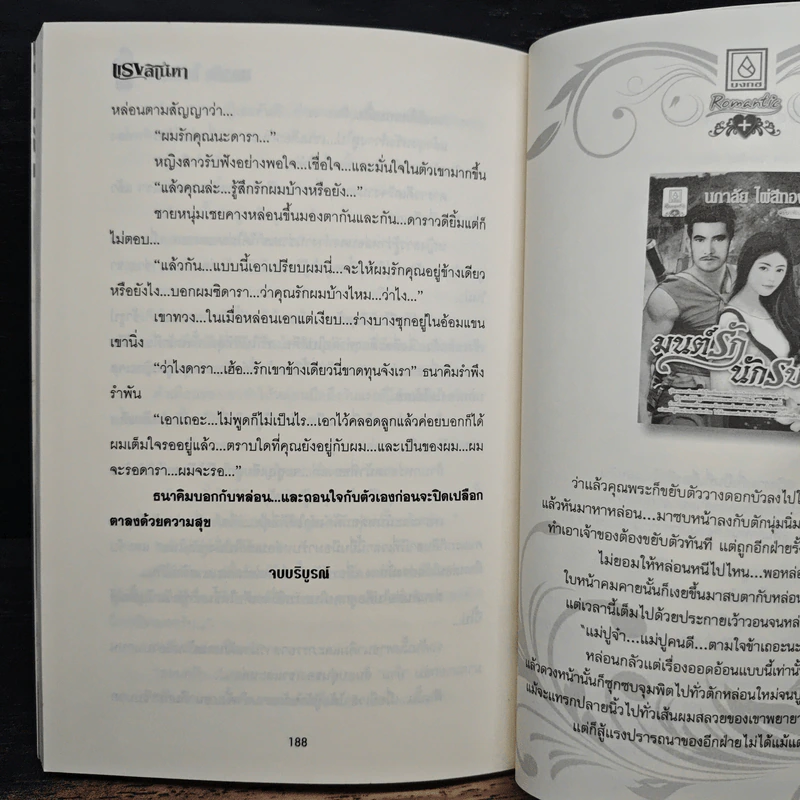 แรงสิเน่หา
หล่อนตามสัญญาว่า...
“ผมรักคุณนะดารา...”
หญิงสาวรับฟังอย่างพอใจ...เชื่อใจ...และมั่นใจในตัวเขามากขึ้น
“แล้วคุณล่ะ...รู้สึกรักผมบ้างหรือยัง...”
ชายหนุ่มเชยคางหล่อนขึ้นมองตากันและกัน...ดาราวดียิ้มแต่ก็
ไม่ตอบ...
“แล้วกัน...แบบนี้เอาเปรียบผมนี่...จะให้ผมรักคุณอยู่ข้างเดียว
หรือยังไง...บอกผมซิดารา...ว่าคุณรักผมบ้างไหม...ว่าไง...”
เขาทวง...ในเมื่อหล่อนเอาแต่เงียบ...ร่างบางซุกอยู่ในอ้อมแขน
เขานิ่ง
“ว่าไงดารา...เฮ้อ...รักเขาข้างเดียวนี่ขาดทุนจังเรา” ธนาคิมรำพึง
รำพัน
“เอาเถอะ...ไม่พูดก็ไม่เป็นไร...เอาไว้คลอดลูกแล้วค่อยบอกก็ได้
ผมเต็มใจรออยู่แล้ว...ตราบใดที่คุณยังอยู่กับผม...และเป็นของผม...ผม
จะรอดารา...ผมจะรอ...”
ธนาคิมบอกกับหล่อน...และถอนใจกับตัวเองก่อนจะปิดเปลือก
ตาลงด้วยความสุข
จบบริบูรณ์
188
บงกช
Romantic
นภาลัย ไผ่สีทอง
มนต์รัก
นักรบ
ว่าแล้วคุณพระก็ขยับตัววางดอกบัวลงไปใ
แล้วหันมาหาหล่อน...มาซบหน้าลงกับตักนุ่มนิ่ม
ทำเอาเจ้าของต้องขยับตัวทันที แต่ถูกอีกฝ่ายรั้
ไม่ยอมให้หล่อนหนีไปไหน...พอหล่อ
ใบหน้าคมคายนั้นก็เงยขึ้นมาสบตากับหล่อน
แต่เวลานี้เต็มไปด้วยประกายเว้าวอนจนหล่
“แม่ปูจ๋า...แม่ปูคนดี...ตามใจข้าเถอะนะ
หล่อนกลัวแต่เรื่องออดอ้อนแบบนี้เท่านั้
แล้วดวงหน้านั้นก็ซุกซบจุมพิตไปทั่วตักหล่อนใหม่จนปู
แม้จะแทรกปลายนิ้วไปทั่วเส้นผมสลวยของเขาพยายา
แต่ก็สู้แรงปรารถนาของอีกฝ่ายไม่ได้แม้แต่